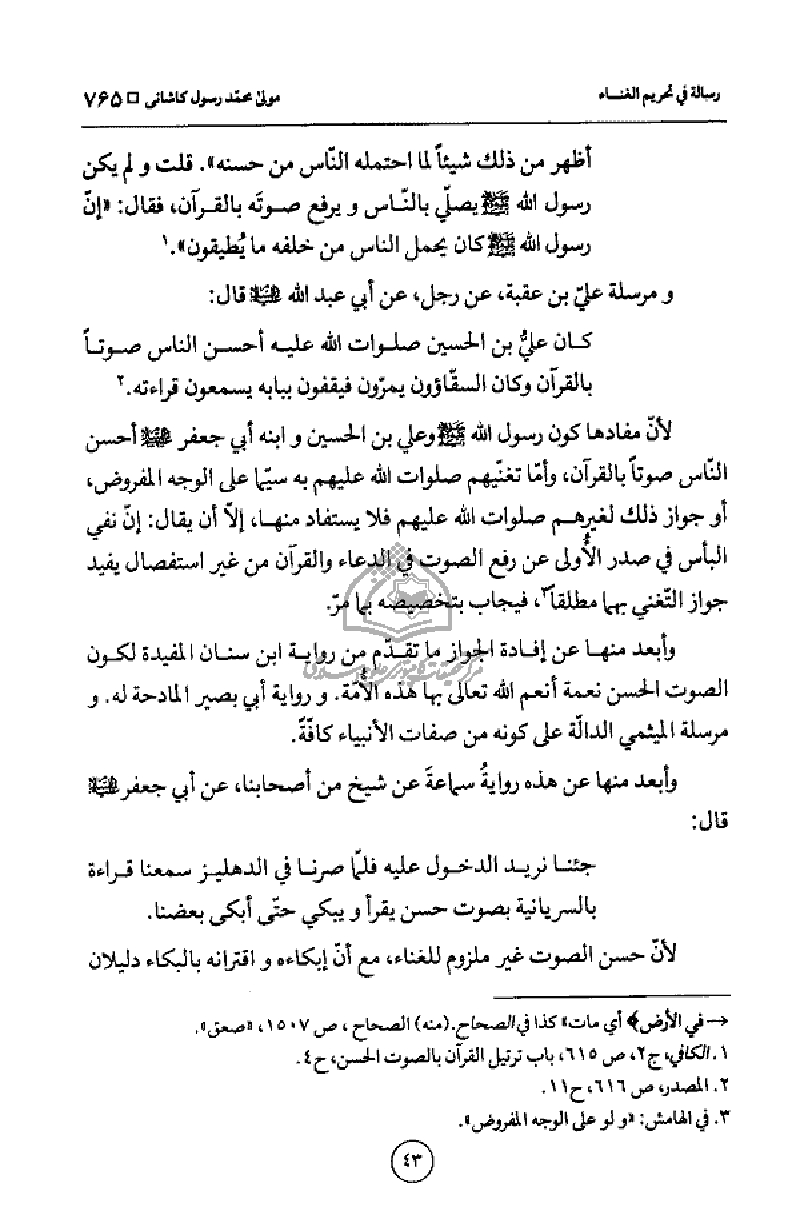 رسالة في تحريم الغنـاء
مولىٰ محمّد رسول كاشانى □ ٧۶۵
أظهر من ذلك شيئاً لما احتمله النّاس من حسنه». قلت و لم يكن
رسول الله ﷺ يصلّي بالنّـاس و يرفع صـوتَه بالقـرآن، فقال: «إنّ
رسول الله ﷺ كان يحمل الناس من خلفه ما يُطيقون».١
و مرسلة عليّ بن عقبة، عن رجل، عن أبي عبد الله عليه السلام قال:
كـان عليُّ بن الحسين صلـوات الله عليـه أحسـن الناس صوتـاً
بالقرآن وكان السقّاؤون يمرّون فيقفون ببابه يسمعون قراءته.٢
لأنّ مفادها كون رسول الله ﷺ وعلي بن الحسين و ابنه أبي جعفر عليه السلام أحسن
النّاس صوتاً بالقرآن، وأمّا تغنّيهم صلوات الله عليهم به سيّما على الوجه المفروض،
أو جواز ذلك لغيرهـم صلوات الله عليهم فلا يستفاد منهـا، إلاّ أن يقال: إنّ نفي
البأس في صدر الأُولى عن رفع الصوت في الدعاء والقرآن من غير استفصال يفيد
جواز التّغني بهما مطلقاً٣، فيجاب بتخصيصه بما مرّ.
وأبعد منهـا عن إفادة الجواز ما تقـدّم من روايـة ابن سنـان المفيدة لكون
الصوت الحسن نعمة أنعم الله تعالى بها هذه الأُمّة. و رواية أبي بصير المادحة له. و
مرسلة الميثمي الدالّة على كونه من صفات الأنبياء كافّةً.
وأبعد منها عن هذه روايةُ سماعةَ عن شيخ من أصحابنا، عن أبي جعفر عليه السلام
قال:
جئنـا نريـد الدخـول عليه فلمّا صرنـا في الدهليـز سمعنا قـراءة
بالسريانية بصوت حسن يقرأ و يبكي حتّى أبكى بعضنا.
لأنّ حسن الصوت غير ملزوم للغناء، مع أنّ إبكاءه و اقترانه بالبكاء دليلان
→ في الأرض﴾ أي مات» كذا في الصحاح. (منه) الصحاح ، ص ١٥٠٧، «صعق».
١. الكافي، ج٢، ص ٦١٥، باب ترتيل القرآن بالصوت الحسن، ح٤.
٢. المصدر، ص ٦١٦، ح١١.
٣. في الهامش: «و لو على الوجه المفروض».
٤٣